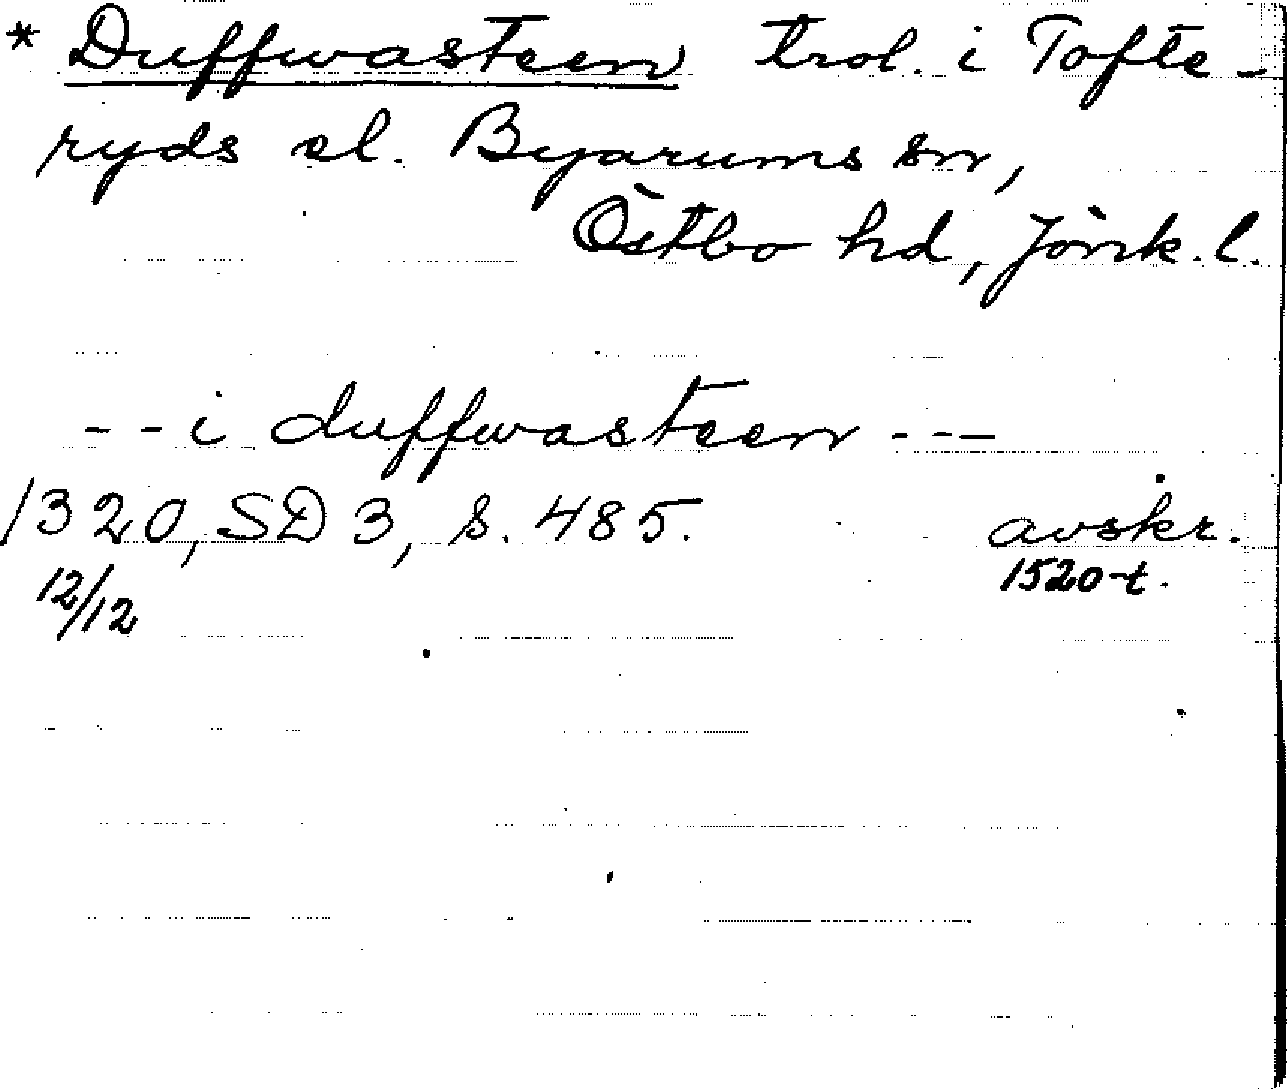 * Duffwasteen trol. i Tofte-
ryds el. Byarums sn,
Östbo hd, Jönk. l.
- - i duffwasteen - - -
1320, SD 3, s. 485. avskr.
12/12 1520-t.